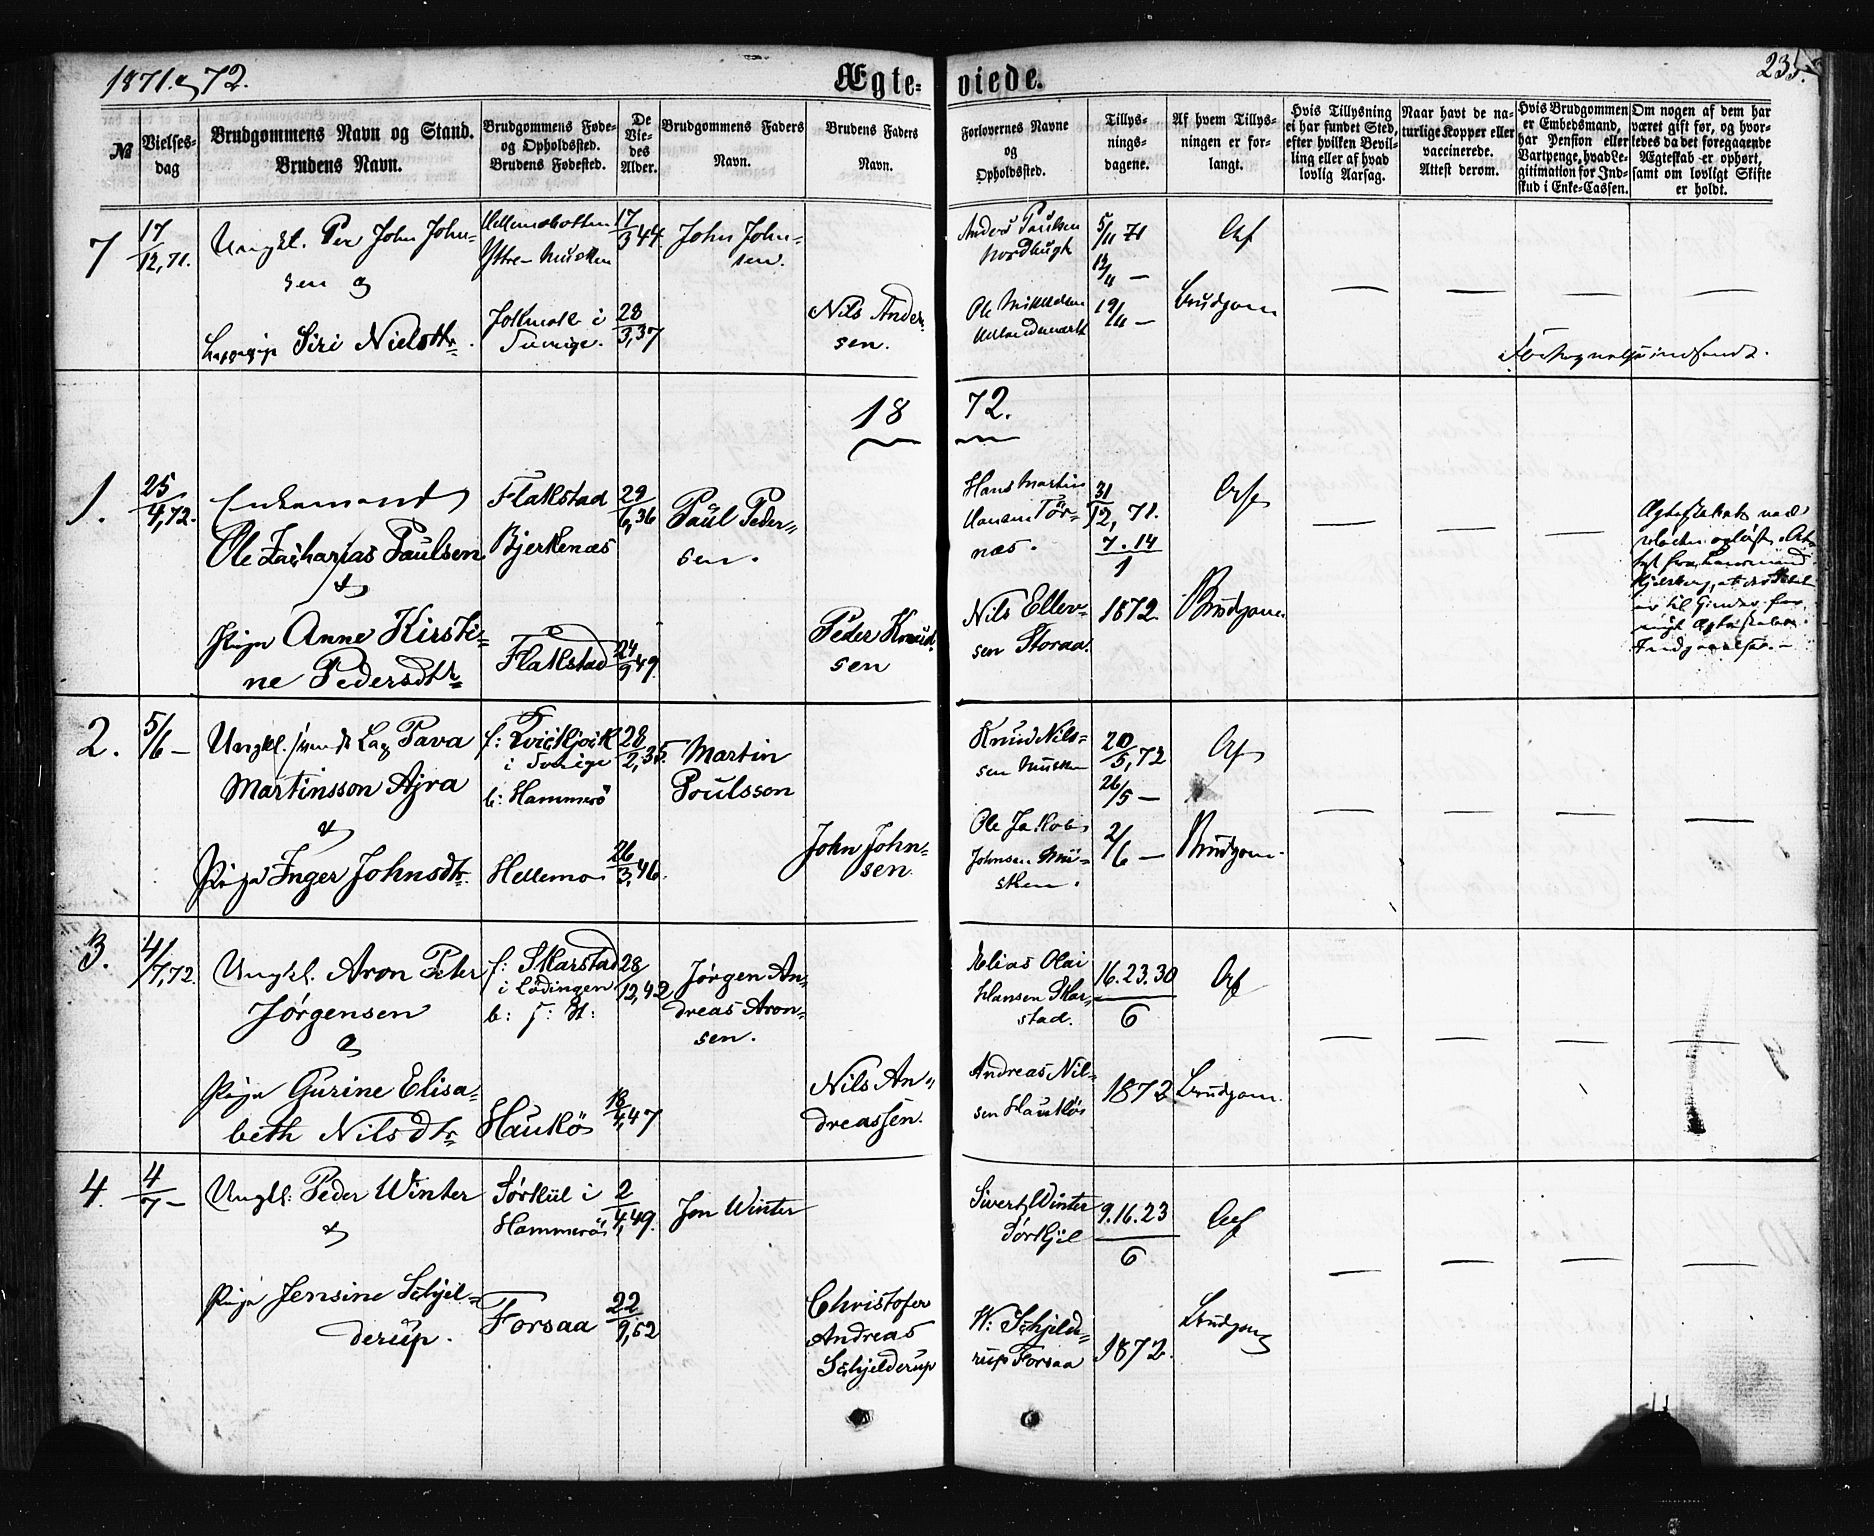 1871 og 72.
Ægte-
viede.
235.
№
Vielses-
dag
Brudgommens Navn og Stand.
Brudens Navn.
Brudgommens Føde-
og Opholdssted.
Brudens Fødested.
De
Vie-
des
Alder.
Brudgommens Faders
Navn.
Brudens Faders
Navn.
Forlovernes Navne
og
Opholdssted.
Tillys-
nings-
dagene.
Af hvem Tillys-
ningen er for-
langt.
Hvis Tillysning
ei har fundet Sted,
efter hvilken Bevil-
ling eller af hvad
lovlig Aarsag.
Naar havt de na-
turlige Kopper eller
vaccinerede.
Attest derom.
Hvis Brudgommen
er Embedsmand,
har Pension eller
Vartpenge, hvad Le-
gitimation for Ind-
skud i Enke-Cassen.
Om nogen af dem har
været gift før, og hvor-
ledes da det foregaaende
Ægteskab er ophørt,
samt om lovligt Skifte
er holdt.
7
17/12, 71.
Ungkl. Per John John-
sen og
Siri Nielsdtr.
Hellemobotten
Ystre-Musken
Jokmok i
Sverige.
17/3 44
28/3, 37
John John-
sen.
Nils Ander-
sen.
Anders Paulsen
Ole Mikkelsen
5/11 71
12/11 —
19/11 —
Brudgom
— — — —
18 72.
1.
25/4, 72.
Enkemand
Ole Zacharias Paulsen
&
Pige Anne Kirsti-
ne Pedersdtr
Flakstad
Bjerkenæs
Flakstad
29/6, 36
24/9 49
Paul Peder-
sen.
Peder Knud-
sen
Hans Martin
Hansen Tør-
næs.
Nils Ellev-
sen Storaa.
31/12, 71.
7. 14/1
1872
Brudgom
— — —
Ægteskabet ved
2.
5/6 —
Ungkl. Lap Pava
Martinsson Ajra
&
Pige Inger Johnsdtr.
f: Kvickjock
i Sverige
b: Hammerö
Hellemo
28/2, 35.
26/3, 46.
Martin
Poulsson
John John-
sen.
Knud Nils-
sen Musken
Ole Jakob
Johnsen Mu-
sken.
20/5, 72
26/5 —
2/6 —
Brudgom
— — — —
3.
4/7, 72
Ungkl. Aron Peter
Jørgensen
&
Pige Gurine Elisa-
beth Nilsdtr
f: Skarstad
i Lödingen
b: s: st:
Haukö
28/12, 42
18/4, 47
Jørgen An-
dreas Aron-
sen.
Nils An-
dreassen.
Elias Olai
Hansen Skar-
stad.
Andreas Nil-
sen Haukö
16. 23. 30
6
1872
Brudgom
— — — —
4.
4/7 —
Ungkl: Peder Winter
&
Pige Jensine Schjel-
derup.
Sørkiil i
Hammerö
Forsaa
2/4, 49.
22/9, 52
Jon Winter
Christofer
Andreas
Schjelderup
Sivert Winter
Sørkjil
W: Schjeld-
rup Forsaa
9. 16. 23
6
1872.
Brudgom
— — — —